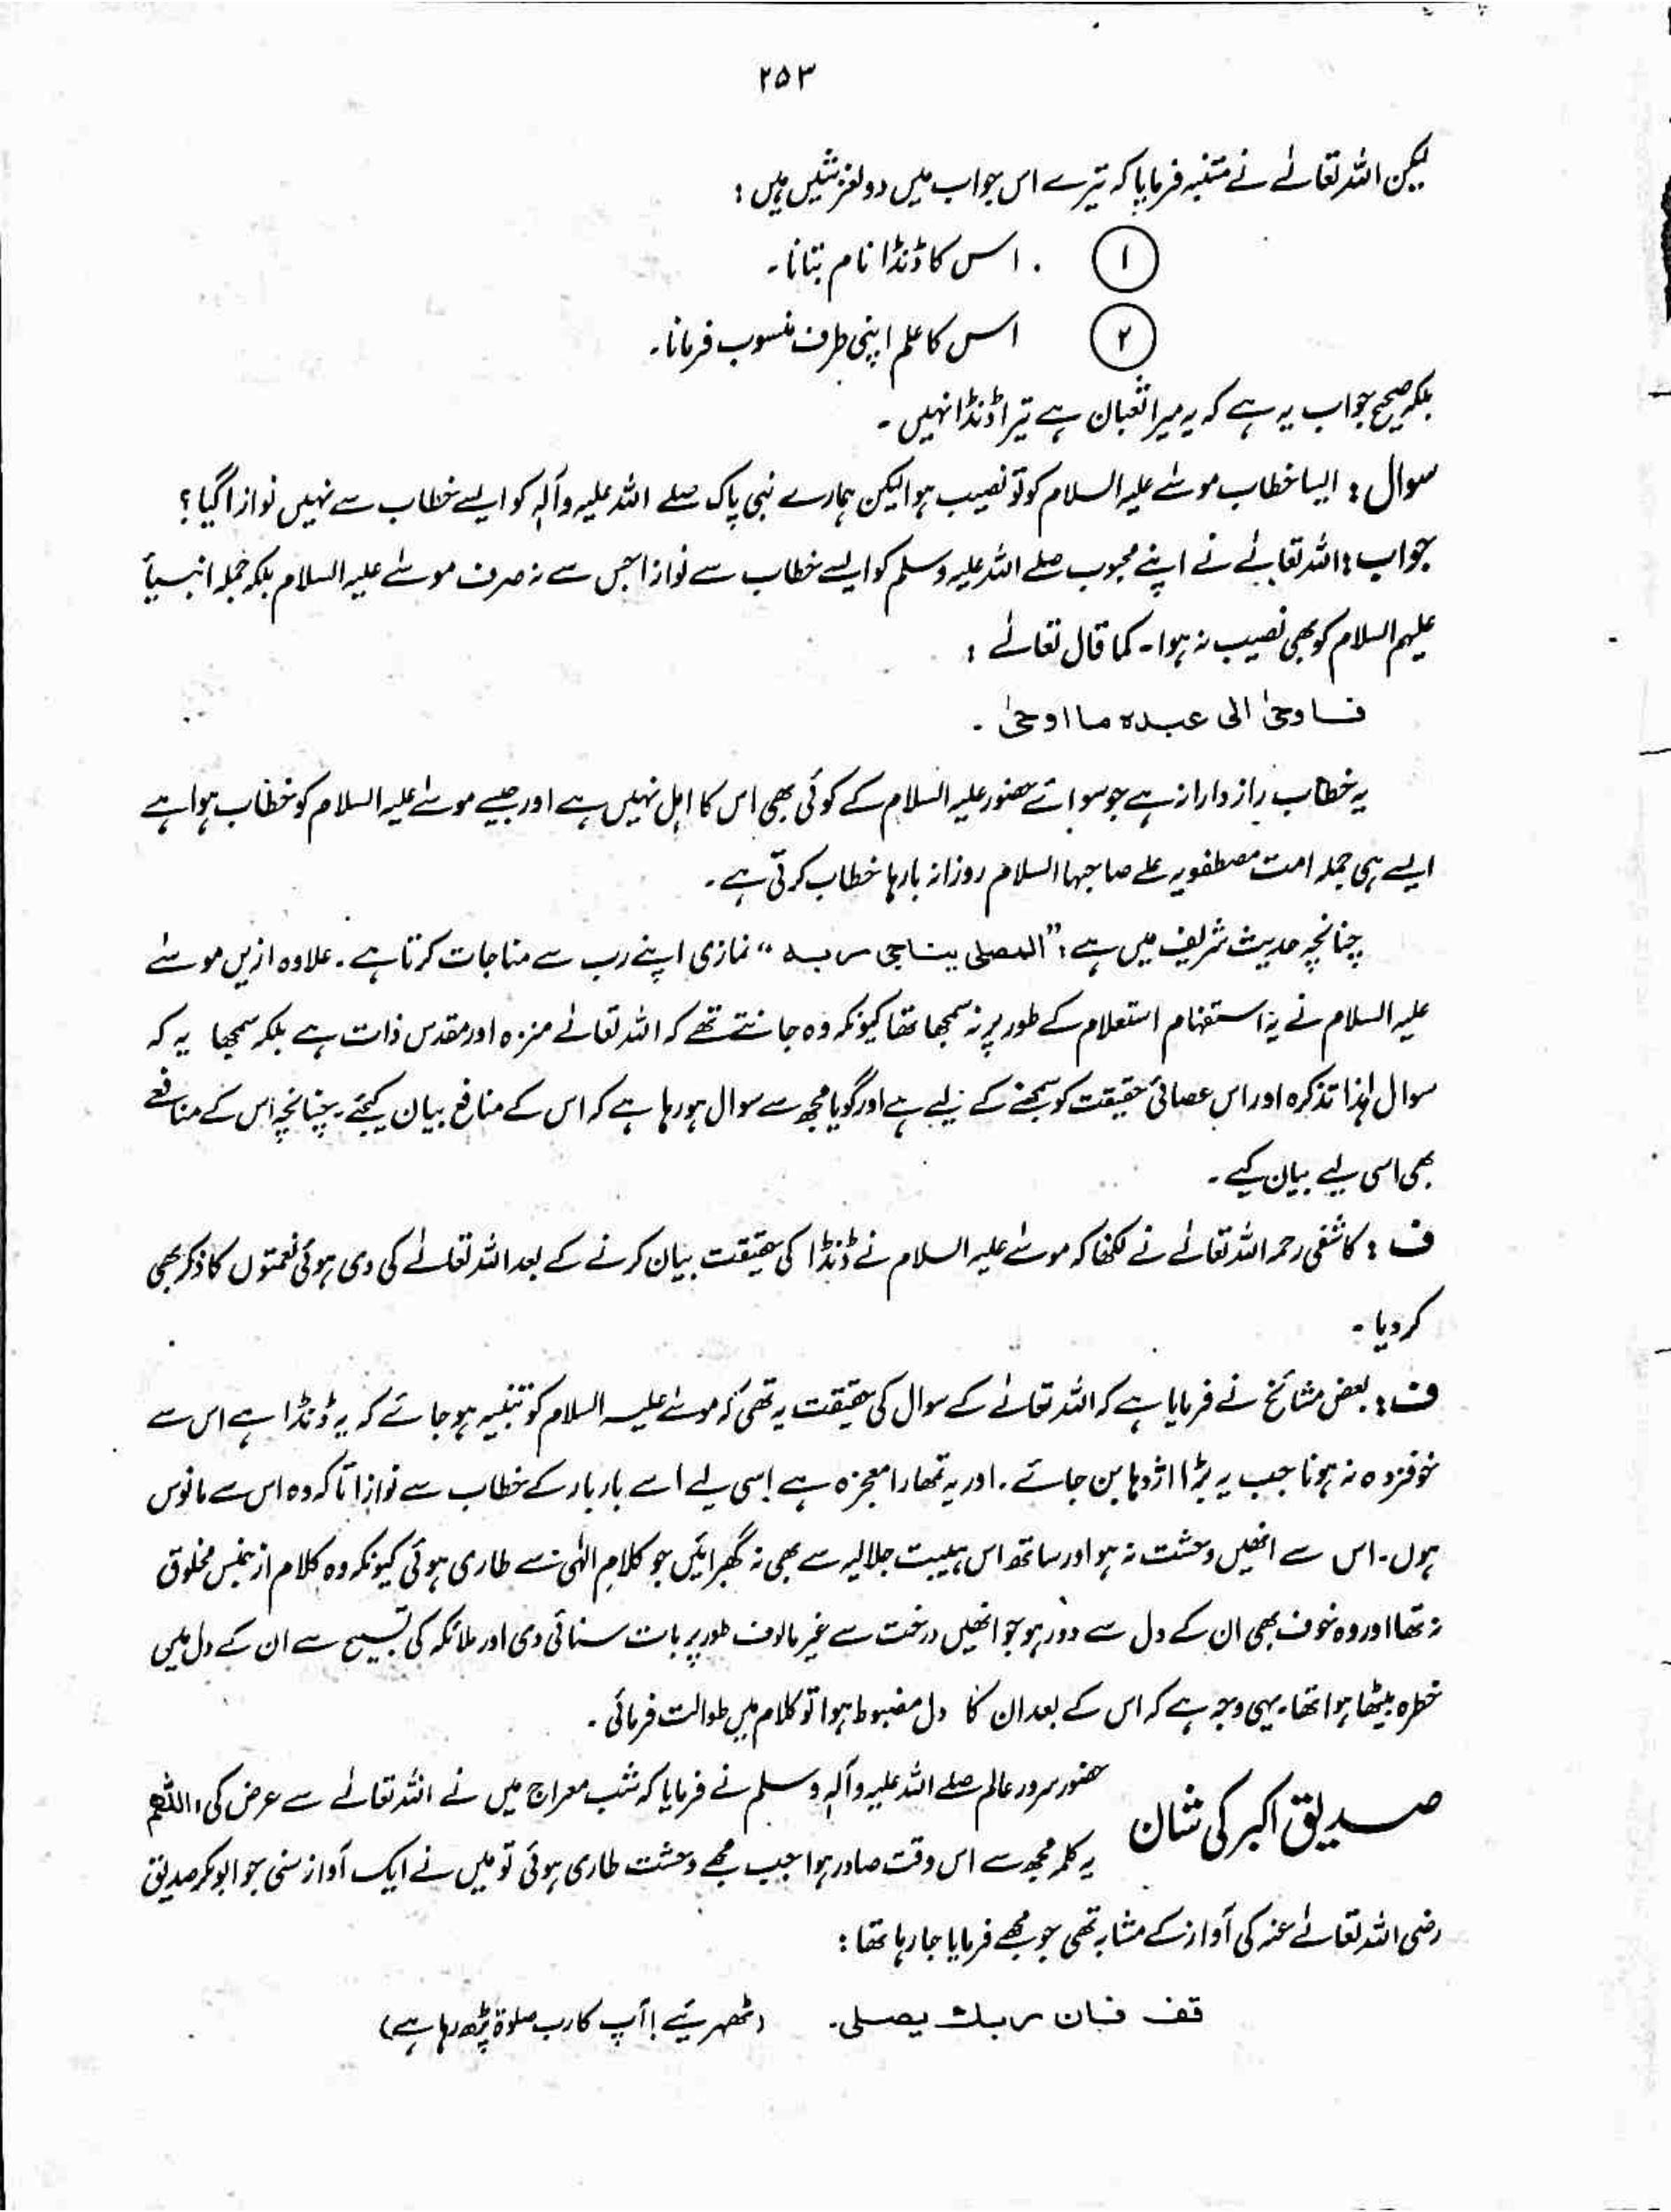 ۲۵۳
لیکن اللہ تعالےٰ نے متنبہ فرمایا کہ تیرے اس جواب میں دو لغزشیں ہیں :
① . اس کا ڈنڈا نام بتانا۔
② اس کا علم اپنی طرف منسوب فرمانا۔
بلکہ صحیح جواب یہ ہے کہ یہ میرا ثعبان ہے تیرا ڈنڈا نہیں۔
سوال : ایسا خطاب موسےٰ علیہ السلام کو تو نصیب ہوا لیکن ہمارے نبی پاک صلے اللہ علیہ وآلہٖ کو ایسے خطاب سے نہیں نوازا گیا ؟
جواب : اللہ تعالےٰ نے اپنے محبوب صلے اللہ علیہ وسلم کو ایسے خطاب سے نوازا جس سے نہ صرف موسےٰ علیہ السلام بلکہ جملہ انبیاً
علیہم السلام کو بھی نصیب نہ ہوا۔ کما قال تعالےٰ :
فاوحیٰ الی عبدہ ما اوحیٰ ۔
یہ خطاب رازدارانہ ہے جو سوائے حضور علیہ السلام کے کوئی بھی اس کا اہل نہیں ہے اور جیسے موسےٰ علیہ السلام کو خطاب ہوا ہے
ایسے ہی جملہ امت مصطفویہ علے صاحبہا السلام روزانہ بارہا خطاب کرتی ہے۔
چنانچہ حدیث شریف میں ہے : "المصلی یناجی ربہ" نمازی اپنے رب سے مناجات کرتا ہے۔ علاوہ ازیں موسےٰ
علیہ السلام نے یہ استفہام استعلام کے طور پر نہ سمجھا تھا کیونکہ وہ جانتے تھے کہ اللہ تعالےٰ منزہ اور مقدس ذات ہے بلکہ سمجھا یہ کہ
سوال ہٰذا تذکرہ اور اس عصائی حقیقت کو سمجھنے کے لیے ہے اور گویا مجھ سے سوال ہو رہا ہے کہ اس کے منافع بیان کیجئے۔ چنانچہ اس کے منافعے
بھی اسی لیے بیان کیے۔
ف : کاشفی رحمہ اللہ تعالےٰ نے لکھا کہ موسےٰ علیہ السلام نے ڈنڈا کی حقیقت بیان کرنے کے بعد اللہ تعالےٰ کی دی ہوئی نعمتوں کا ذکر بھی
کر دیا۔
ف : بعض مشائخ نے فرمایا ہے کہ اللہ تعالےٰ کے سوال کی حقیقت یہ تھی کہ موسےٰ علیہ السلام کو تنبیہ ہو جائے کہ یہ ڈنڈا ہے اس سے
خوفزدہ نہ ہونا جب یہ بڑا اژدہا بن جائے۔ اور یہ تمھارا معجزہ ہے اسی لیے اسے بار بار کے خطاب سے نوازا تاکہ وہ اس سے مانوس
ہوں۔ اس سے انھیں وحشت نہ ہو اور ساتھ اس ہیبت جلالیہ سے بھی نہ گھبرائیں جو کلامِ الٰہی سے طاری ہوئی کیونکہ وہ کلام از جنس مخلوق
نہ تھا اور وہ خوف بھی ان کے دل سے دور ہو جو انھیں درخت سے غیر مالوف طور پر بات سنائی دی اور ملائکہ کی تسبیح سے ان کے دل میں
خطرہ بیٹھا ہوا تھا۔ یہی وجہ ہے کہ اس کے بعد ان کا دل مضبوط ہوا تو کلام میں طوالت فرمائی۔
صدیق اکبر کی شان
حضور سرور عالم صلے اللہ علیہ وآلہٖ وسلم نے فرمایا کہ شب معراج میں نے اللہ تعالےٰ سے عرض کی، اللّٰھم
یہ کلمہ مجھ سے اس وقت صادر ہوا جب مجھے وحشت طاری ہوئی تو میں نے ایک آواز سنی جو ابوبکر صدیق
رضی اللہ تعالےٰ عنہ کی آواز کے مشابہ تھی جو مجھے فرمایا جا رہا تھا :
قف فان ربک یصلی۔ (ٹھہریئے! آپ کا رب صلوۃ پڑھ رہا ہے)